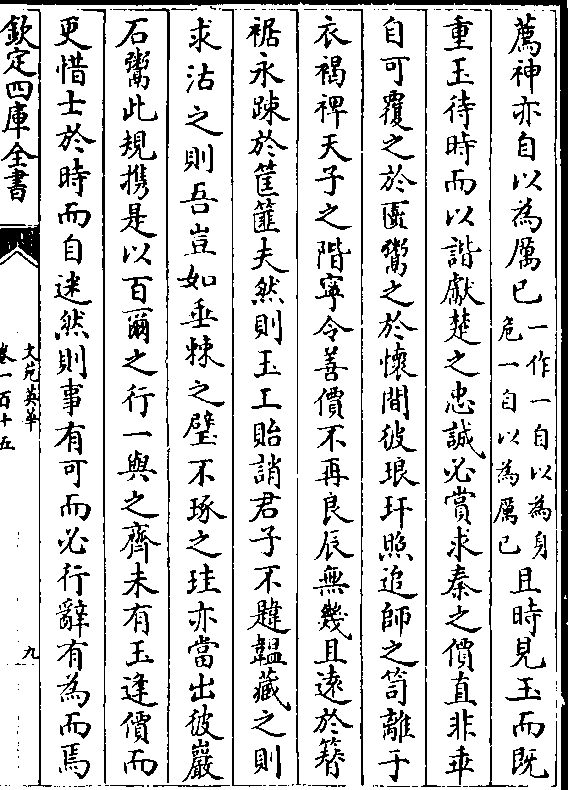 薦神亦自以為厲已一作一自以為身危一自以為厲已且時見玉而既
重玉待時而以諧獻楚之忠誠必賞求秦之價直非乖
自可覆之於匵鬻之於懷間彼琅玕照追師之笥離于
衣褐裨天子之階寧令善價不再良辰無幾且遠於簪
裾永踈於筐篚夫然則玉工貽誚君子不韙韞藏之則
求沽之則吾豈如垂棘之璧不琢之珪亦當出彼巖
石鬻此規携是以百爾之行一與之齊未有玉逢價而
更惜士於時而自迷然則事有可而必行辭有為而焉
欽定四庫全書
文苑英華
卷一百十五
九